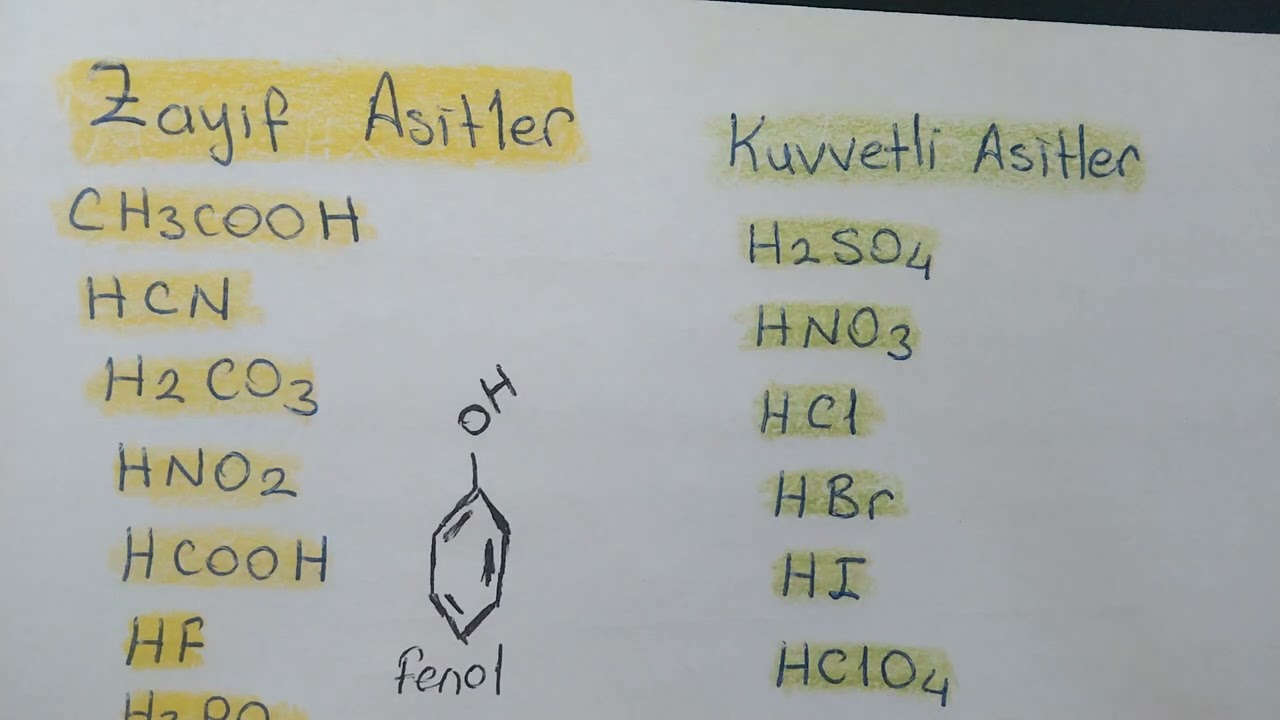 Zayıf Asitler
CH3COOH
HCN
H2CO3
HNO2
HCOOH
HF
OH
Fenol
Kuvvetli Asitler
H2SO4
HNO3
HCl
HBr
HI
HClO4